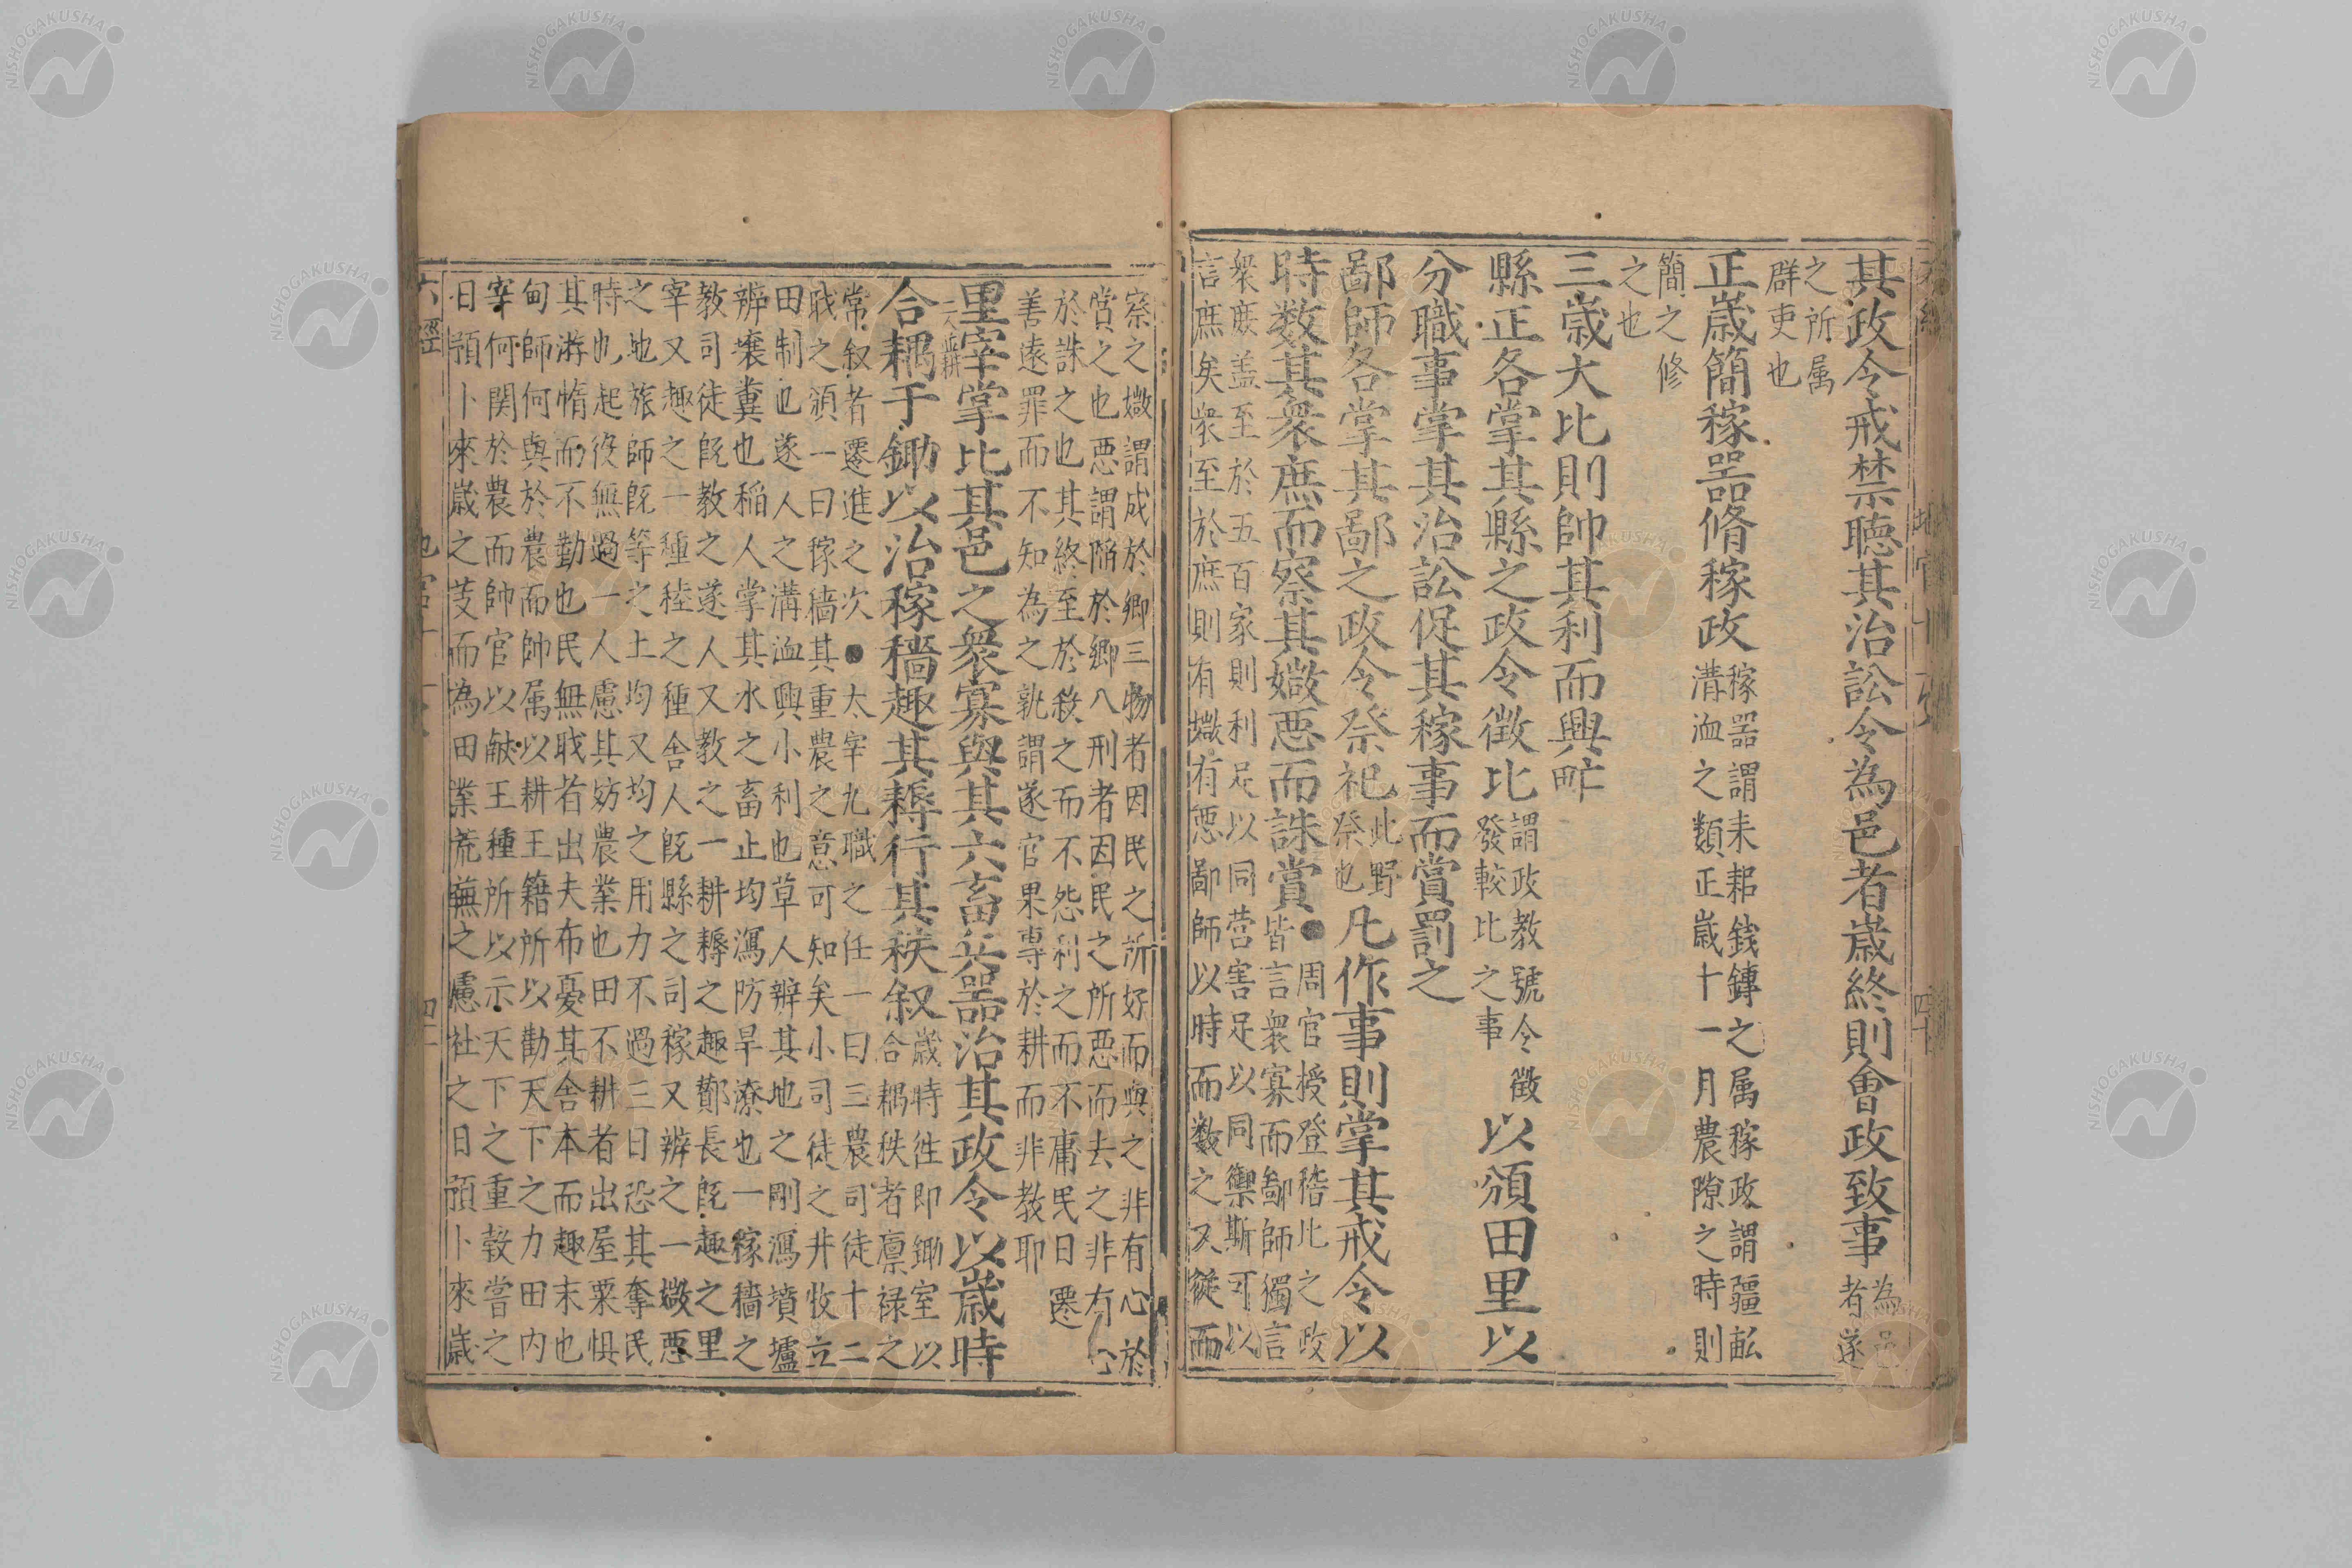 其政令戒禁聴其治訟令為邑者歳終則會政致事為邑
者遂
之所属
群吏也
正歳簡稼噐脩稼政稼噐謂耒耜銭鏄之属稼政謂疆畝
溝洫之類正歳十一月農隙之時則
簡之修
之也
三歳大比則帥其利而興甿
縣正各掌其縣之政令徴比謂政教號令徴
發較比之事以頒田里以
分職事掌其治訟促其稼事而賞罰之
鄙師各掌其鄙之政令祭祀此野
祭也凡作事則掌其戒令以
時数其衆庶而察其媺悪而誅賞●周官授登稽比之政
皆言衆寡而鄙師獨言
衆庶盖至於五百家則利足以同营害足以同禦斯可以
言庶矣衆至於庶則有媺有悪鄙師以時而数之又從而
察之媺謂成於郷三物者因民之所好而與之非有心於
賞之也悪謂陥於郷八刑者因民之所悪而去之非有心
於誅之也其終至於殺之而不怨利之而不庸民日遷
善遠罪而不知為之孰謂遂官果専於耕而非教耶
里宰掌比其邑之衆寡與其六畜兵噐治其政令以歳時
合耦于鋤以治稼穡趣其耨行其秩叙歳時徃即鋤室以
合耦秩者廪禄之
常叙者遷進之次●大宰九職之任一曰三農司徒十二
職之頒一曰稼穡其重農之意可知矣小司徒之井牧立
田制也遂人之溝洫興小利也草人辨其地之剛潟墳壚
辨壌糞也稲人掌其水之畜止均潟防旱潦也一稼穡之
教司徒旣教之遂人又教之一耕耨之趣鄼長旣趣之里
宰又趣之一種稑之種舎人旣縣之司稼又辨之一媺悪
之地旅師旣等之土均又均之用力不過三日恐其奪民
時也起役無過一人慮其妨農業也田不耕者出屋粟惧
其游惰而不勤也民無職者出夫布憂其舎本而趣末也
甸師何與於農而帥属以耕王籍所以勸天下之力田内
宰何関於農而帥官以献王種所以示天下之重穀嘗之
日預卜來歳之芟而為田業荒蕪之慮社之日預卜來歳
六經